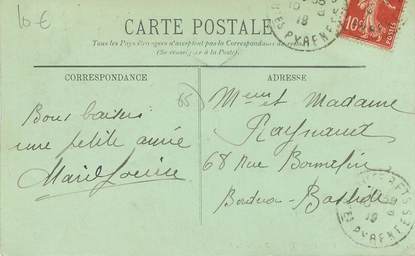 10 €
CARTE POSTALE
Tous les Pays étrangers n'acceptent pas la Correspondance au recto
(Se renseigner à la Poste).
CORRESPONDANCE
ADRESSE
65
Bons baisers
une petite amie
Marie Louise
Meur et Madame
Raynaud
68 Rue
Bordeaux - Bastide
10
PYRENEES
PYRENEES